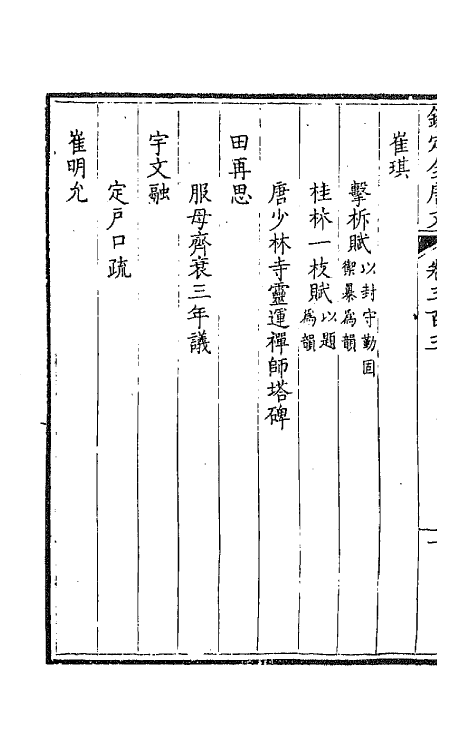 欽定全唐文 卷三百三 一
崔琪
擊柝賦以封守勤固禦暴爲韻
桂林一枝賦以題爲韻
唐少林寺靈運禪師塔碑
田再思
服母齊衰三年議
宇文融
定戸口疏
崔明允